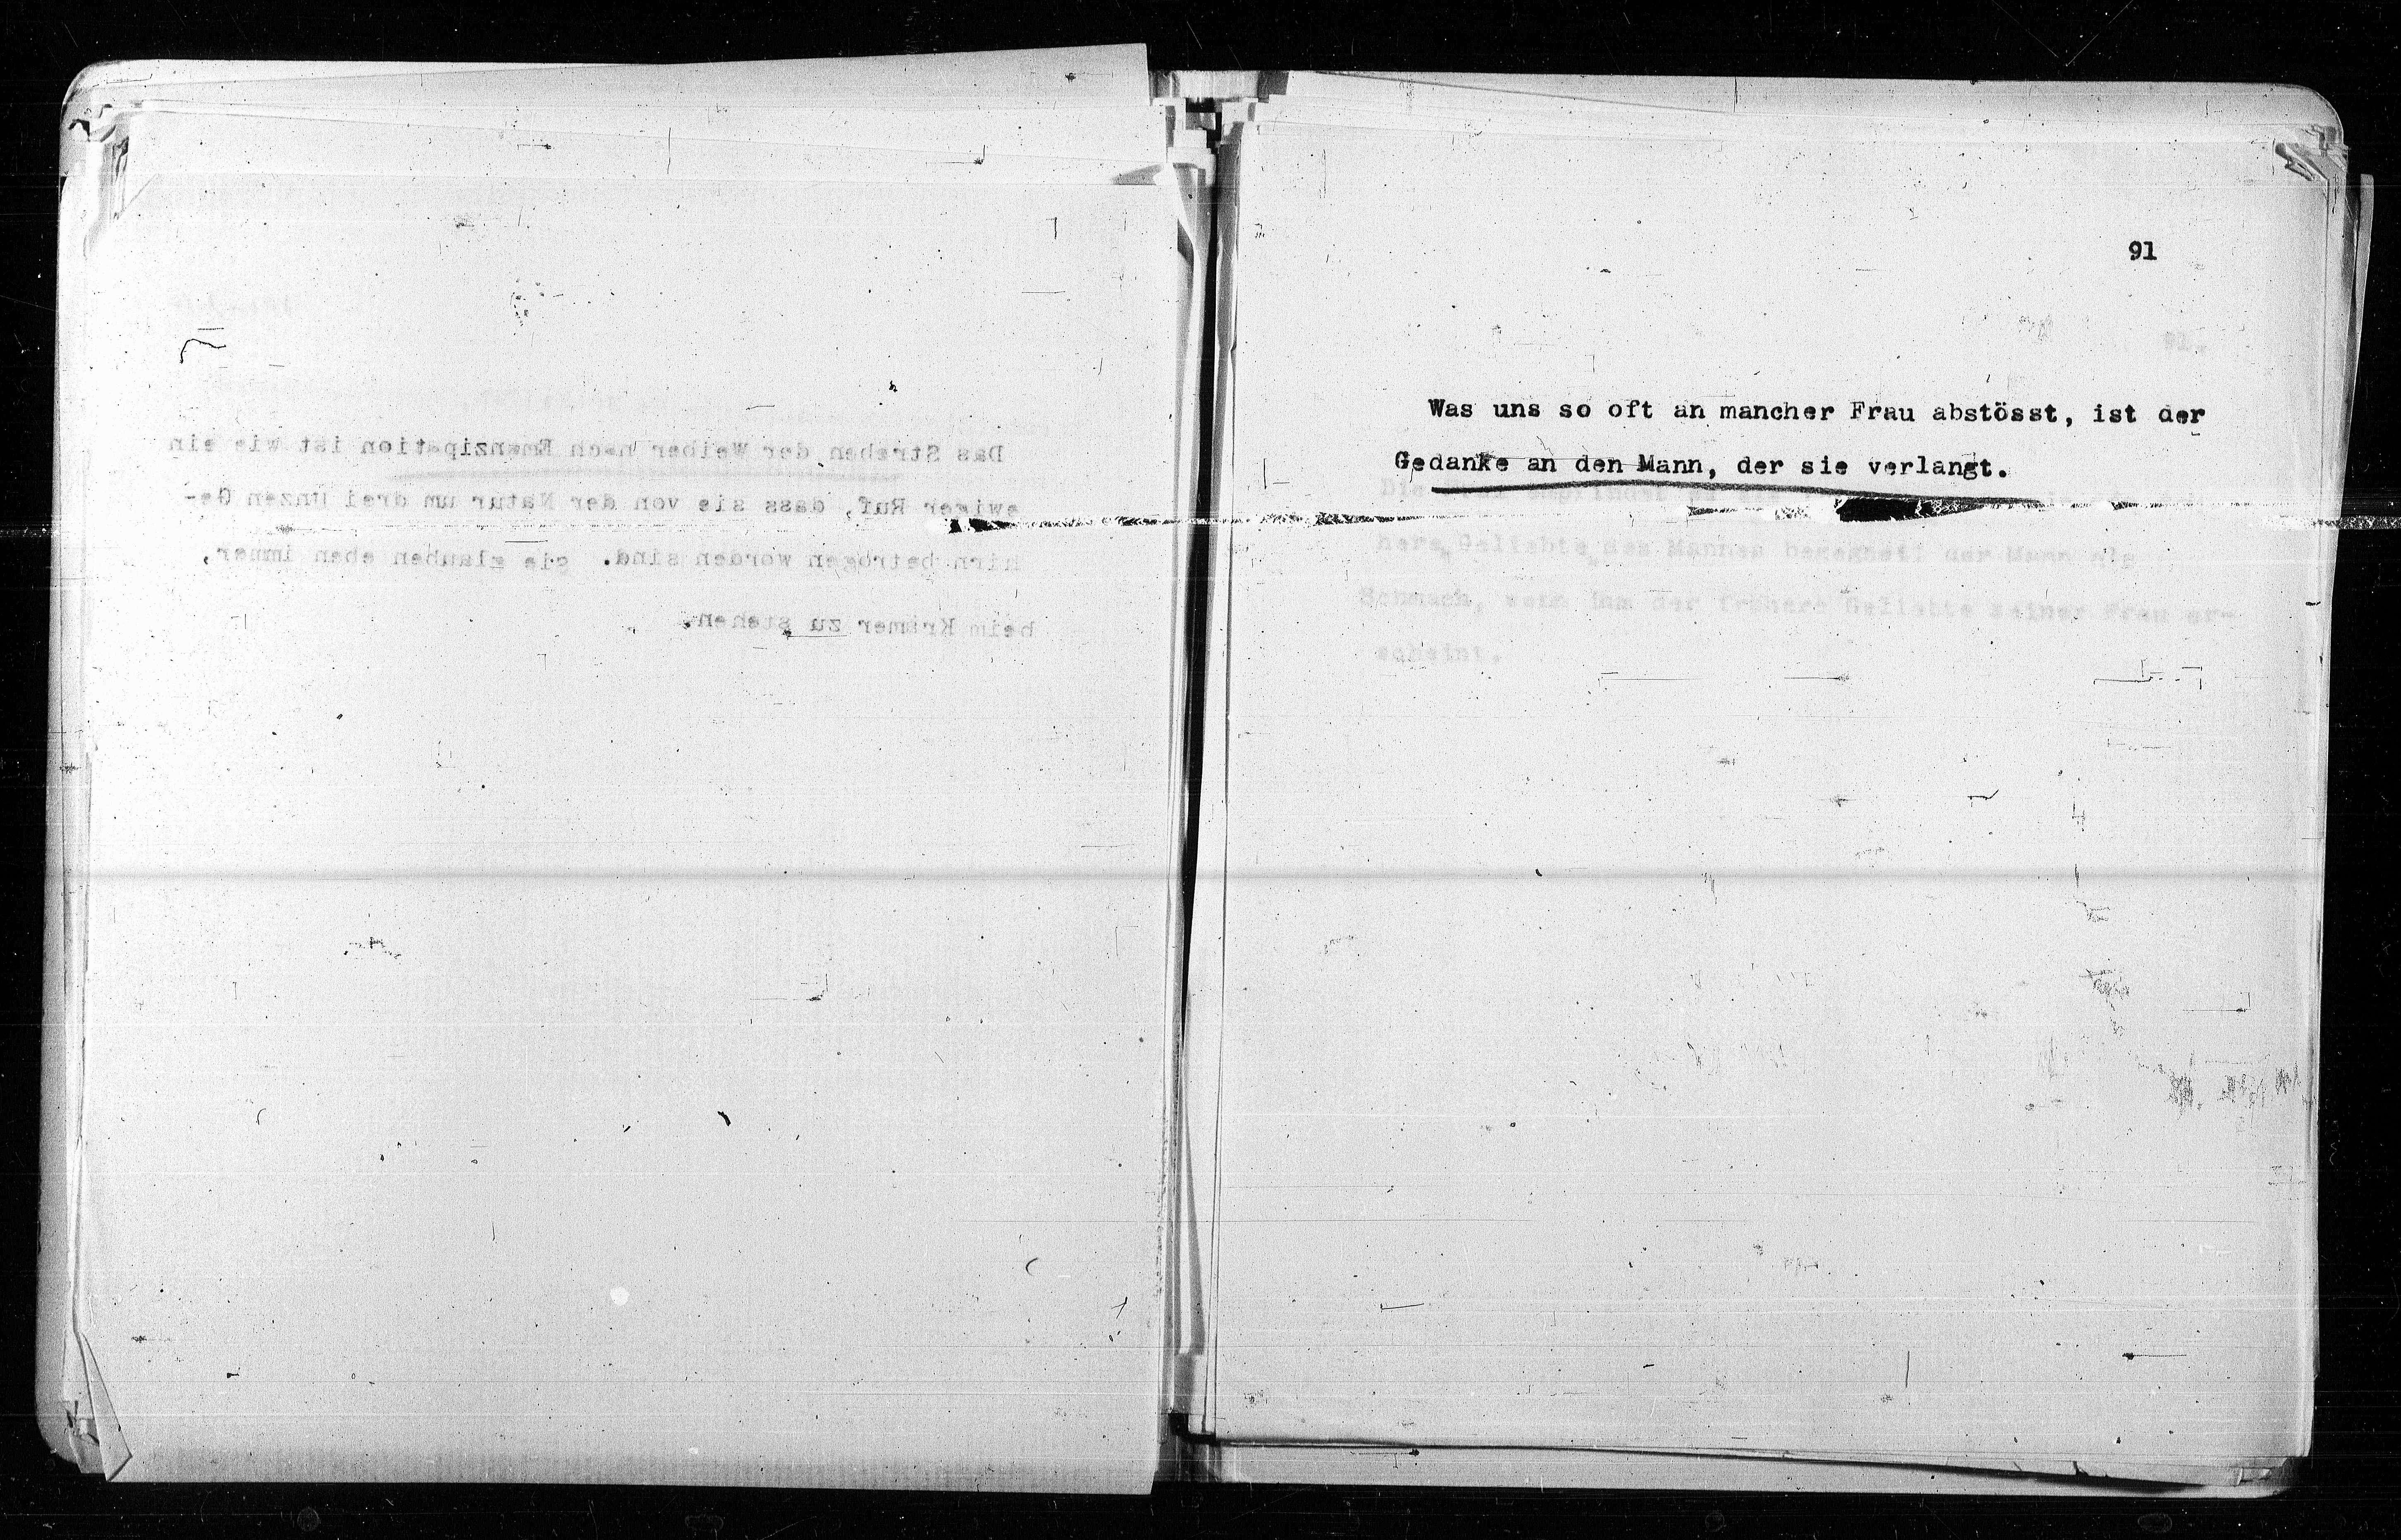 Das Streben der Weiber nach Emanzipation ist wie ein
ewiger Ruf, dass sie von der Natur um drei Unzen Ge-
hirn betrogen worden sind. Sie glauben eben immer,
beim Krämer zu stehen.
91
Was uns so oft an mancher Frau abstösst, ist der
Gedanke an den Mann, der sie verlangt.
91.
Die
here Geliebte des Mannes begegnet: der Mann als
Schmach, wenn ihm der frühere Geliebte seiner Frau er-
scheint.